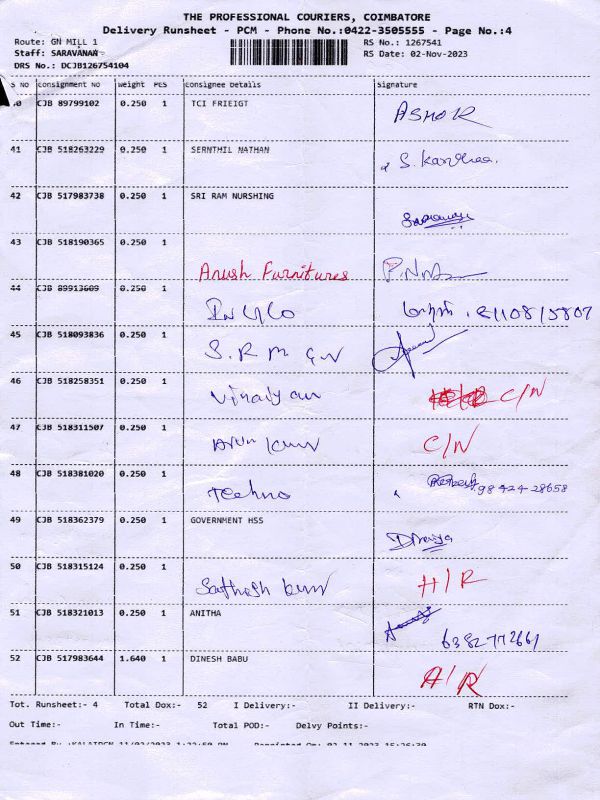 THE PROFESSIONAL COURIERS, COIMBATORE
Delivery Runsheet - PCM - Phone No.:0422-3505555 - Page No.:4
Route: GN MILL 1 RS No.: 1267541
Staff: SARAVANAN RS Date: 02-Nov-2023
DRS No.: DCJB126754104
S No Consignment No Weight PCS Consignee Details Signature
CJB 89799102 0.250 1 TCI FRIEIGT ASHOK
41 CJB 518263229 0.250 1 SERNTHIL NATHAN
42 CJB 517983738 0.250 1 SRI RAM NURSHING
43 CJB 518190365 0.250 1
Anush Furnitures
44 CJB 89913609 0.250 1
45 CJB 518093836 0.250 1
S.R M GN
46 CJB 518258351 0.250 1
C/N
47 CJB 518311507 0.250 1
Arun kumr C/N
48 CJB 518381020 0.250 1
Techno 98424-28658
49 CJB 518362379 0.250 1 GOVERNMENT HSS
50 CJB 518315124 0.250 1
H/R
51 CJB 518321013 0.250 1 ANITHA
6382772661
52 CJB 517983644 1.640 1 DINESH BABU
A/R
Tot. Runsheet:- 4 Total Dox:- 52 I Delivery:- II Delivery:- RTN Dox:-
Out Time:- In Time:- Total POD:- Delvy Points:-